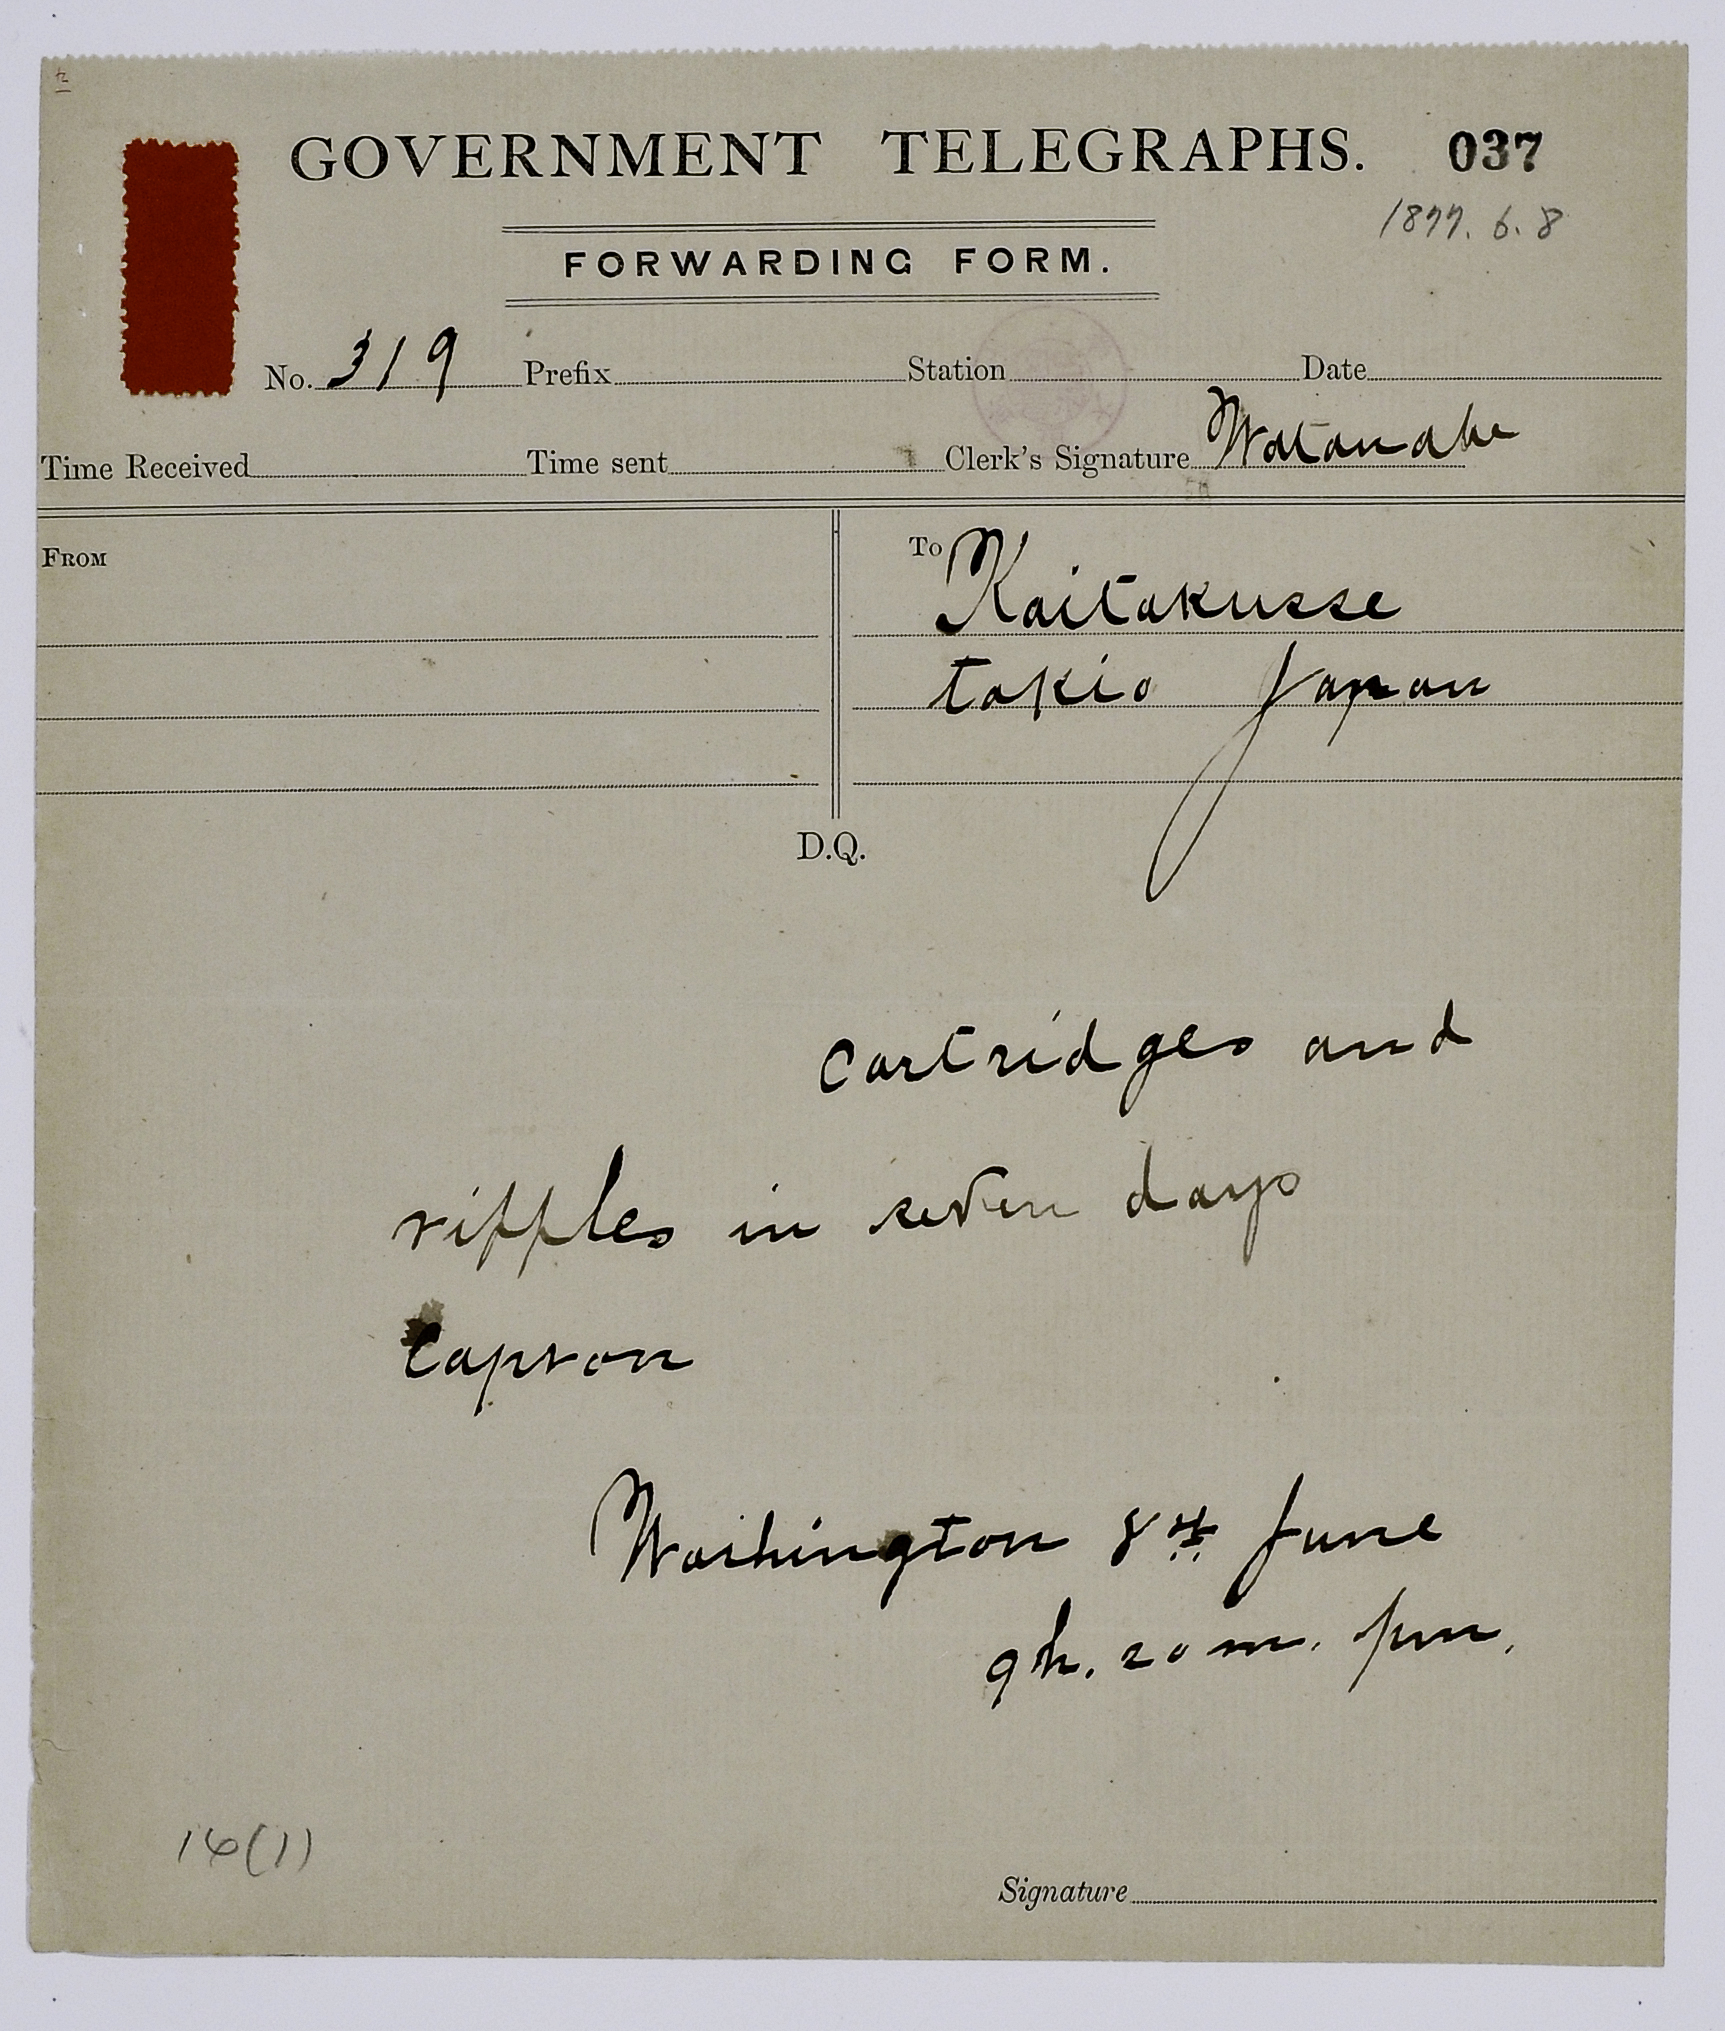 GOVERNMENT TELEGRAPHS. 037
1877. 6. 8
FORWARDING FORM.
No. 319 Prefix Station Date
Time Received Time sent Clerk's Signature Watanabe
FROM
To Kaitakusse
tokio Japan
D.Q.
cartridges and
riffles in seven days
Capron
Washington 8th June
9h. 20m. pm.
16(1)
Signature